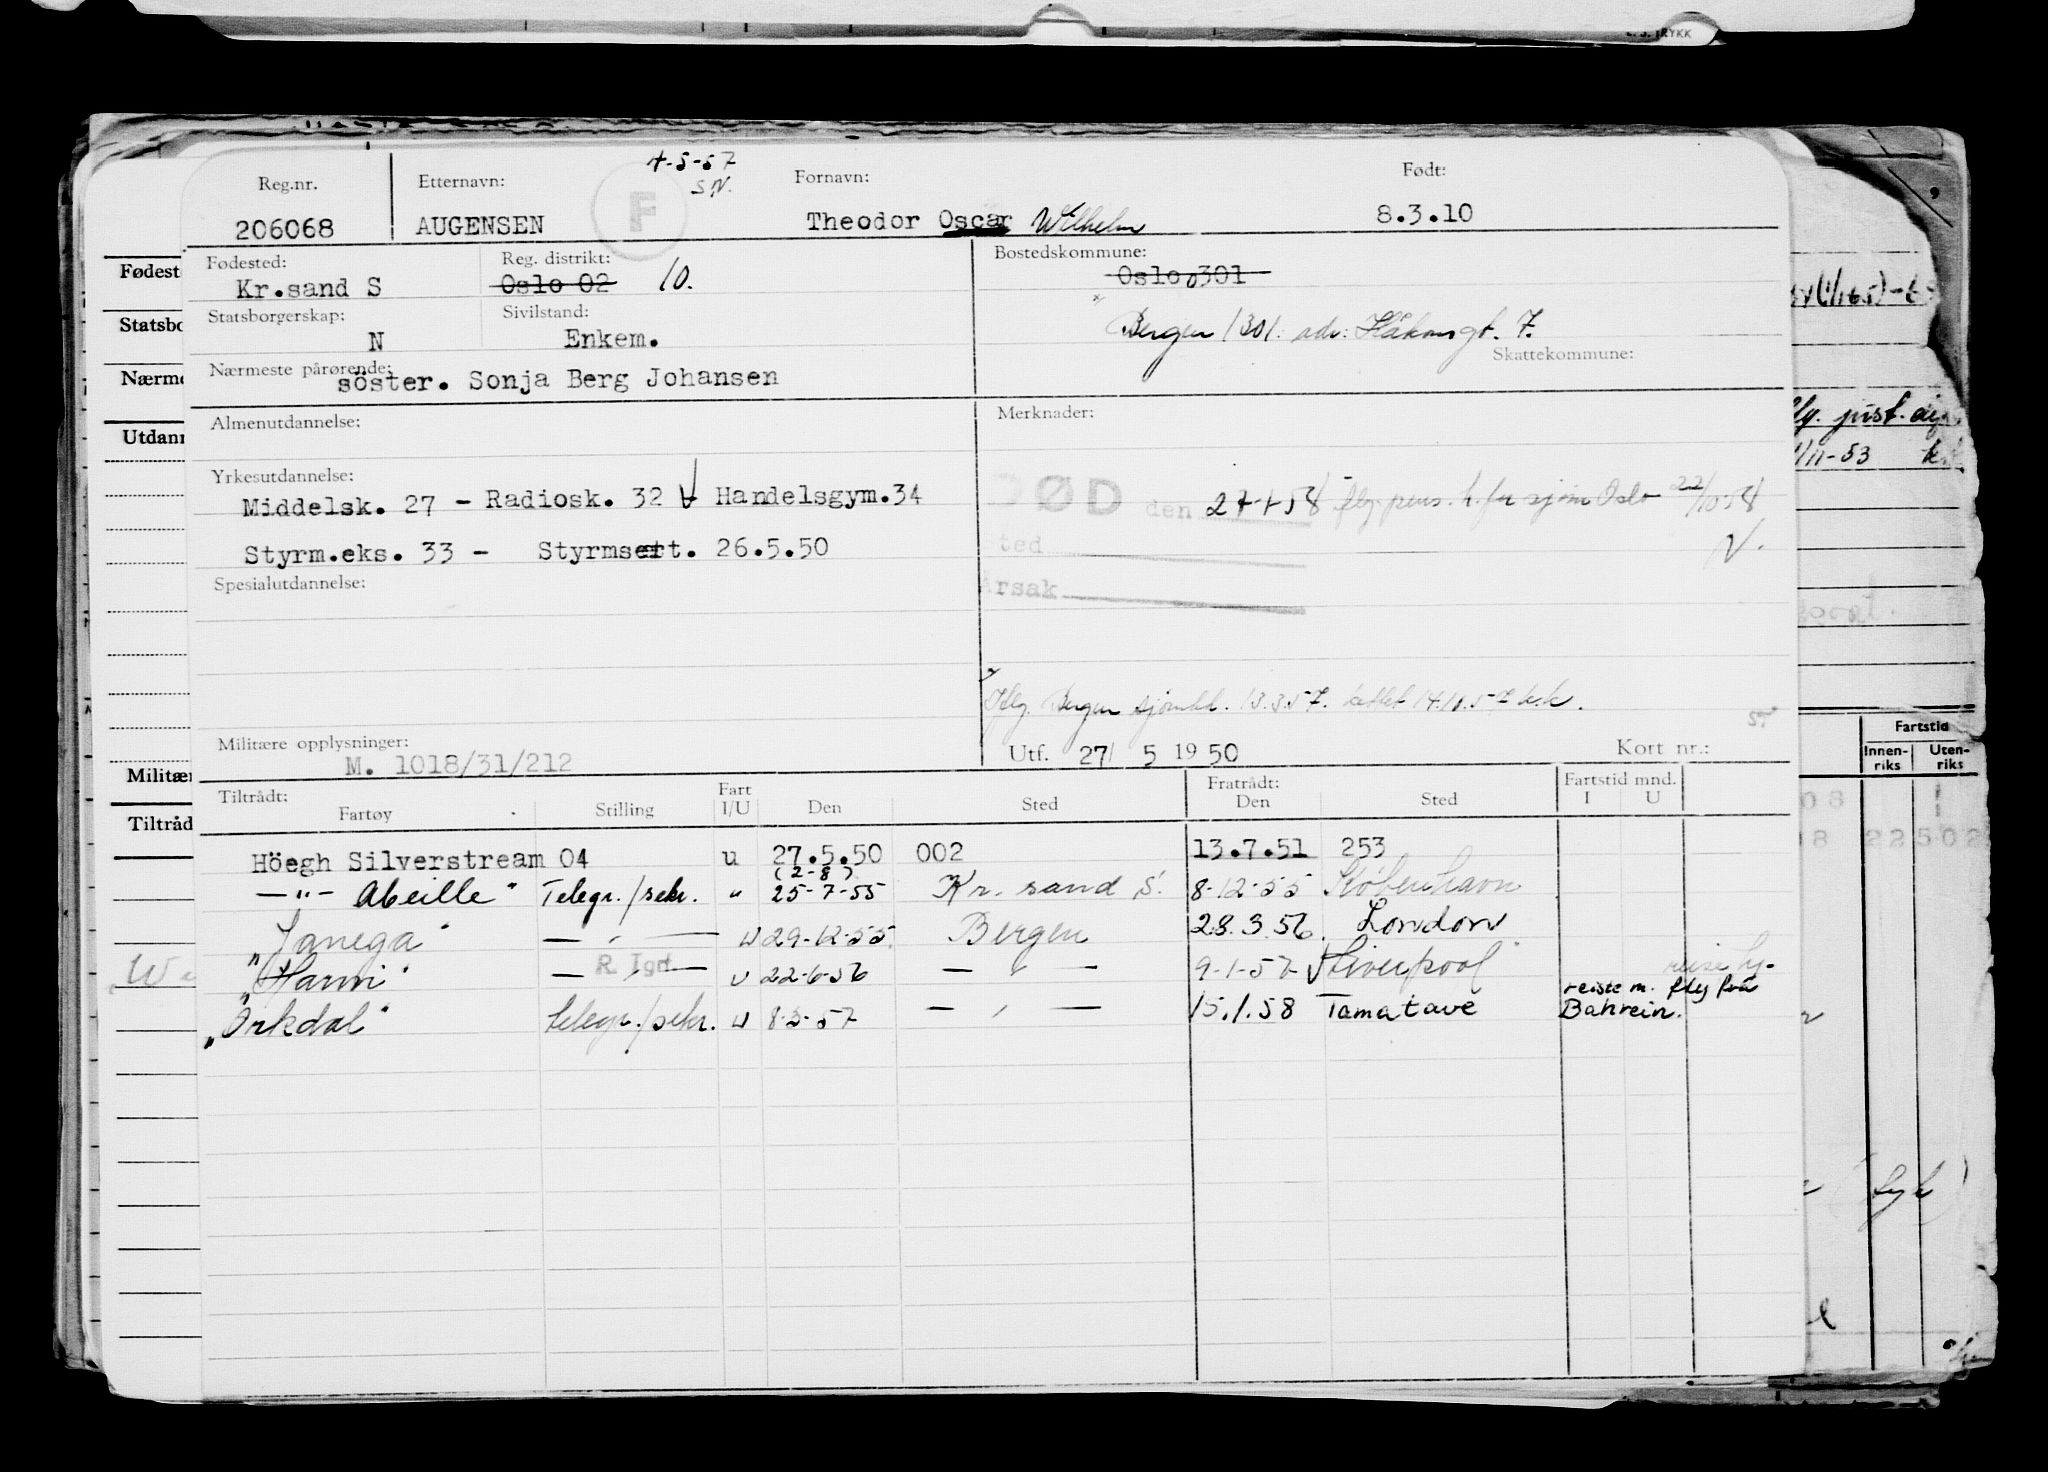 L. S. TRYKK
4-5-57
S.N.
Reg.nr. Etternavn: F Fornavn: Født:
206068 AUGENSEN Theodor Oscar Wilhelm 8.3.10
Fødested: Reg. distrikt: Bostedskommune:
Kr.sand S Oslo 02 10. Oslo 0301
Statsborgerskap: Sivilstand:
N Enkem. Bergen 1301: adr: Håkonsgt. 7.
Skattekommune:
Nærmeste pårørende:
söster. Sonja Berg Johansen
Almenutdannelse: Merknader:
Yrkesutdannelse:
Middelsk. 27 - Radiosk. 32 Handelsgym.34
ØD den flg. pens. h. for sjøm Oslo 22/10-58
N.
Styrm.eks. 33 - Styrmsert. 26.5.50
sted
Årsak
Spesialutdannelse:
Iflg. Bergen sjømkt. 13.3.57.
Militære opplysninger:
M. 1018/31/212
Utf. 27/ 5 19 50 Kort nr.:
Tiltrådt: Fart Fratrådt: Fartstid mnd.
Fartøy Stilling I/U Den Sted Den Sted I U
Höegh Silverstream 04 u 27.5.50 002 13.7.51 253
(2-8)
—"— Abeille" Telegr./sekr. " 25-7-55 Kr. sand S. 8-12-55 København
"Janega" — " — u 29-12-55 Bergen 28.3.56. London
"Harwi" — " — R. Tgrf u 22-6-56 — " — 9-1-57 Liverpool
reiste m. fly fra
"Orkdal" telegr./sekr. u 8-3-57 — " — 15.1.58 Tamatave Bahrein.
Fødest
Statsbo
Nærme
Utdann
Militær
Tiltråd
just.
/11-53
Fartstid
Innen-riks Uten-riks
08
18 22502